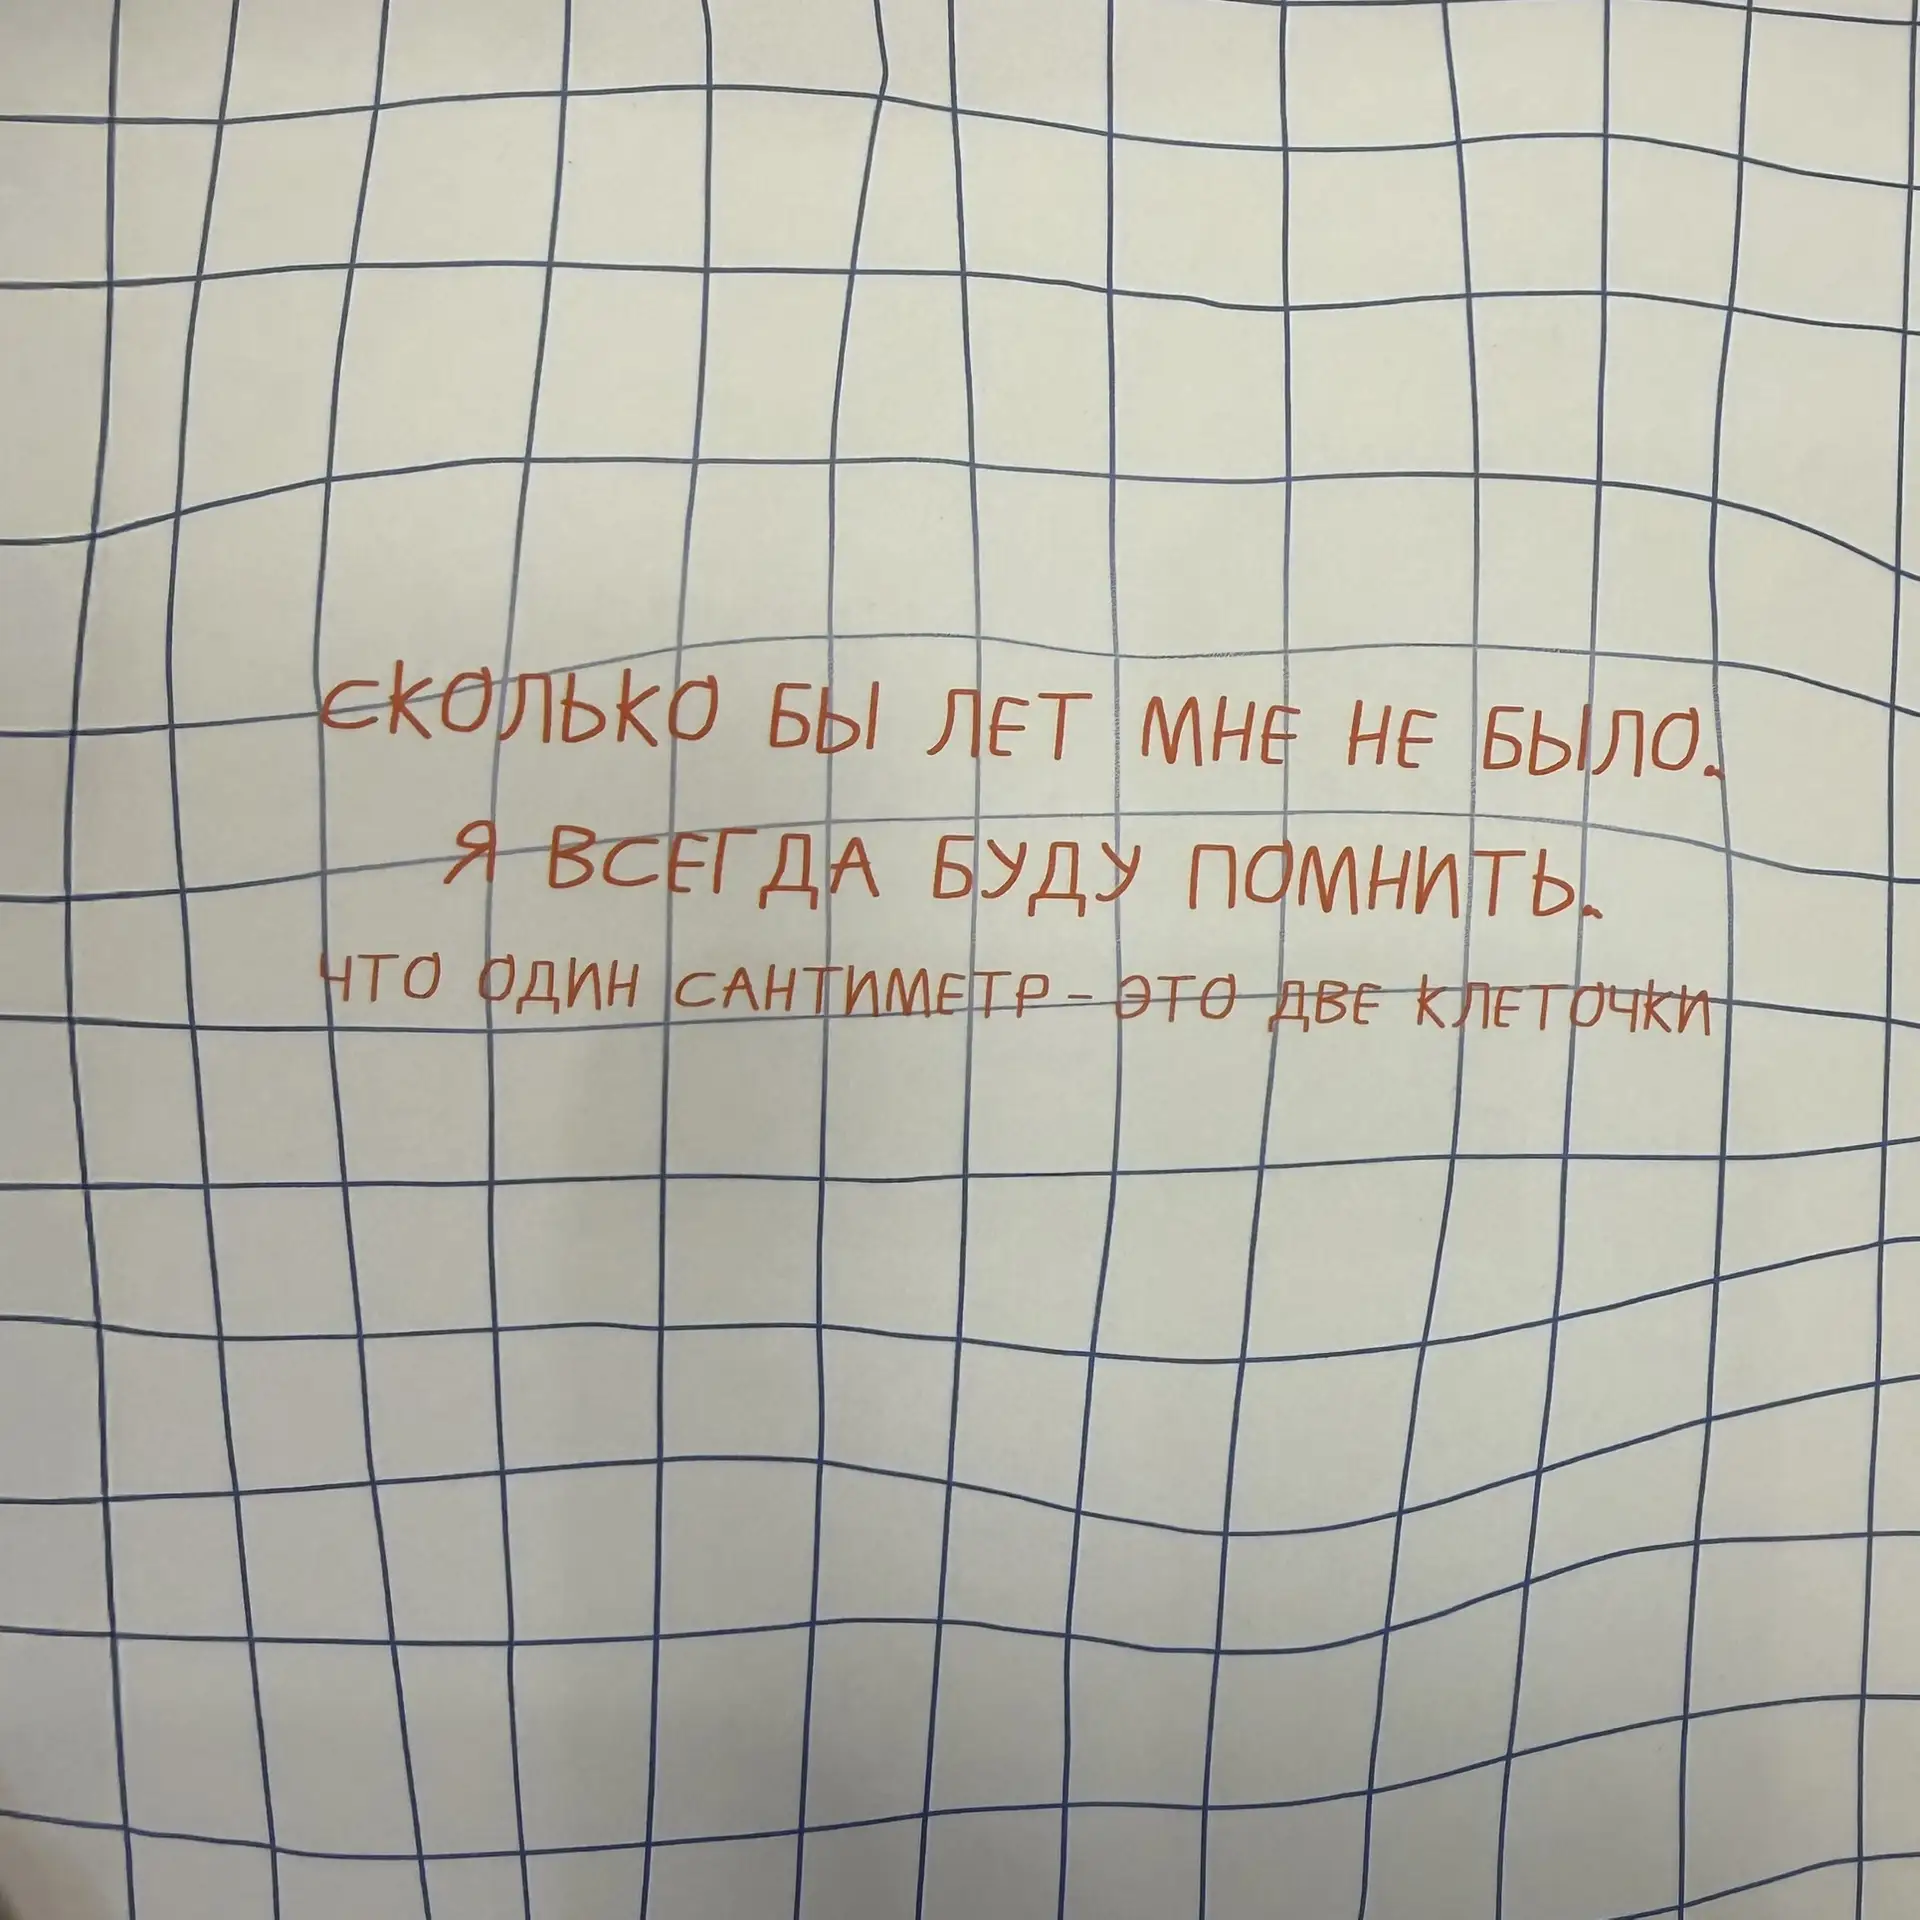 СКОЛЬКО БЫ ЛЕТ МНЕ НЕ БЫЛО.
Я ВСЕГДА БУДУ ПОМНИТЬ.
ЧТО ОДИН САНТИМЕТР - ЭТО ДВЕ КЛЕТОЧКИ